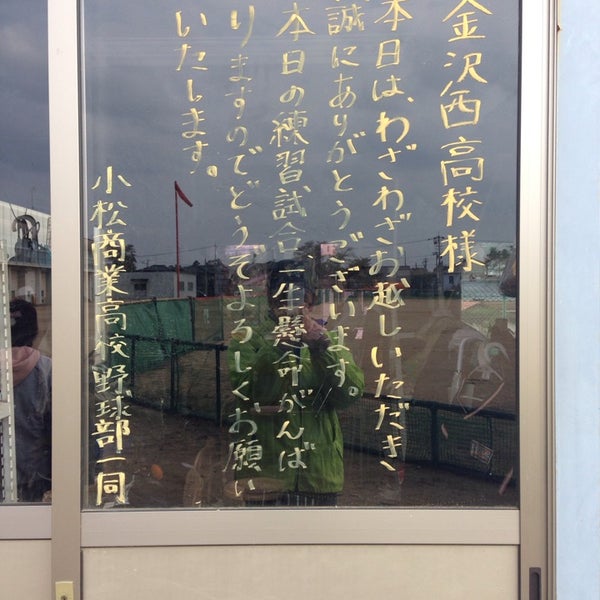 金沢西高校様
本日は、わざわざお越しいただき
誠にありがとうございます。
本日の練習試合、一生懸命がんば
りますのでどうぞよろしくお願い
いたします。
小松商業高校野球部一同